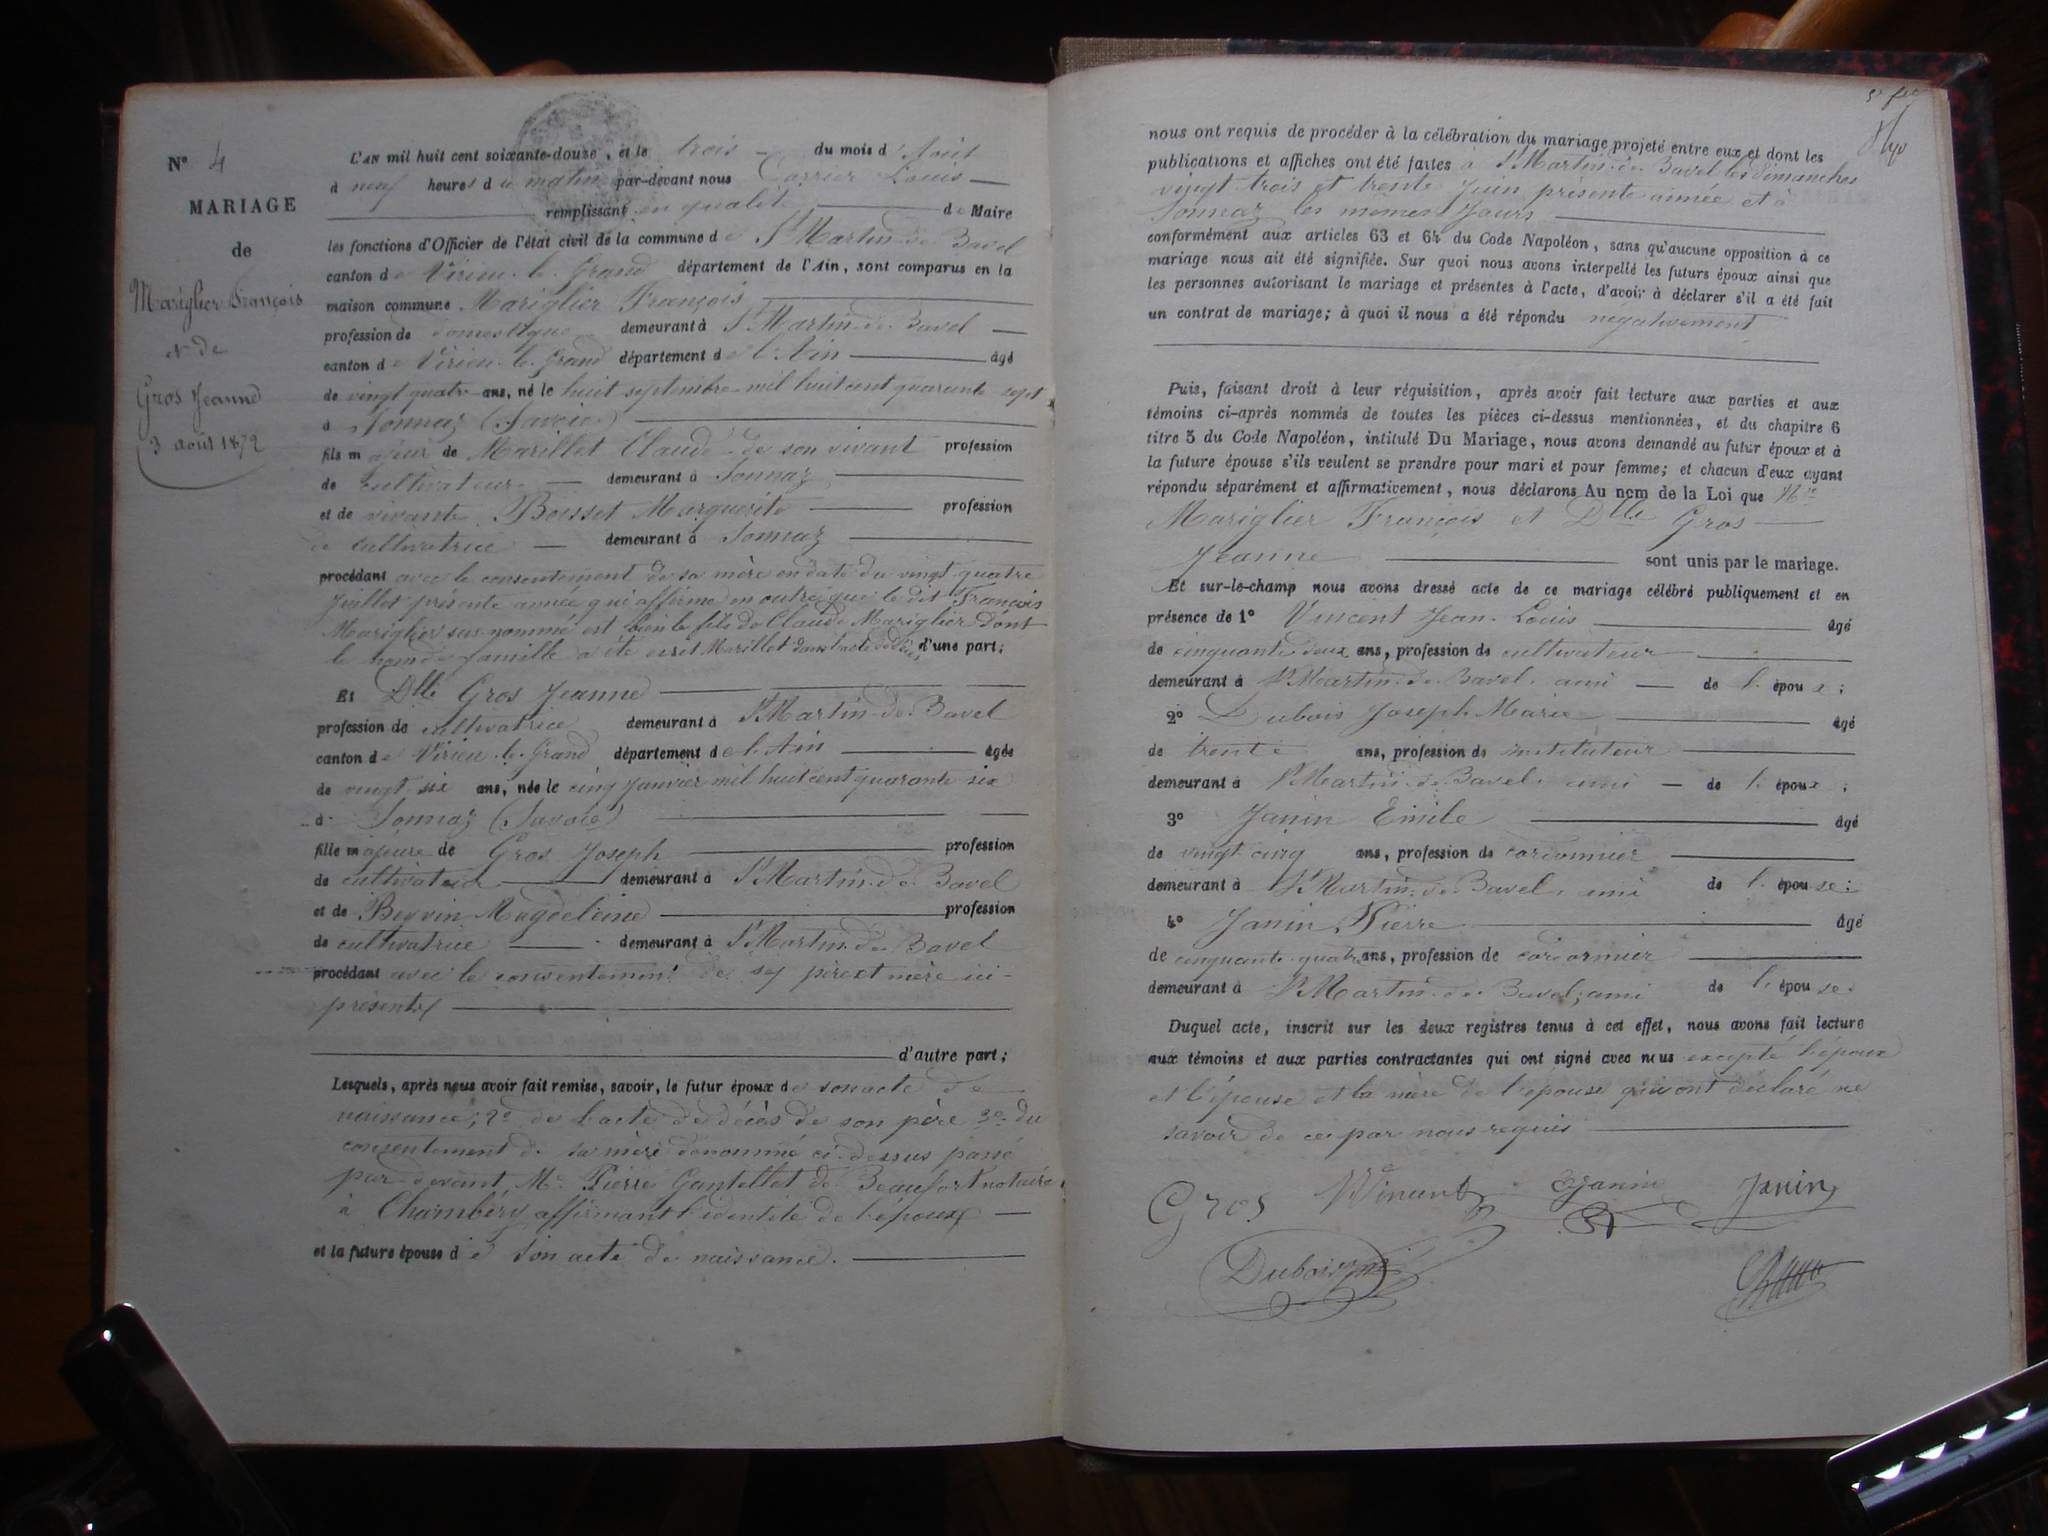 N° 4
MARIAGE
de
Mariglier François
et de
Gros Jeanne
3 août 1872
L'AN mil huit cent soixante-douze, et le trois du mois d'Août
à neuf heures du matin par-devant nous Carrier Louis
remplissant en qualité de Maire
les fonctions d'Officier de l'état civil de la commune de St Martin-de-Bavel
canton de Virieu-le-Grand département de l'Ain, sont comparus en la
maison commune Mariglier François
profession de domestique demeurant à St Martin-de-Bavel
canton de Virieu-le-Grand département de l'Ain âgé
de vingt quatre ans, né le huit septembre mil huit cent quarante sept
à Sonnaz (Savoie)
fils majeur de Marillet Claude de son vivant profession
de cultivateur demeurant à Sonnaz
et de vivante Boisset Marguerite profession
de cultivatrice demeurant à Sonnaz
procédant avec le consentement de sa mère en date du vingt quatre
Juillet présente année qui affirme en outre que le dit François
Mariglier sus-nommé est bien le fils de Claude Mariglier dont
le nom de famille a été écrit Marillet dans l'acte de décès d'une part;
Et Dlle Gros Jeanne
profession de cultivatrice demeurant à St Martin-de-Bavel
canton de Virieu-le-Grand département de l'Ain âgée
de vingt six ans, née le cinq Janvier mil huit cent quarante six
à Sonnaz (Savoie)
fille majeure de Gros Joseph profession
de cultivateur demeurant à St Martin-de-Bavel
et de Magdeleine profession
de cultivatrice demeurant à St Martin-de-Bavel
procédant avec le consentement de ses père et mère ici-
présents
d'autre part;
Lesquels, après nous avoir fait remise, savoir, le futur époux de son acte de
naissance; 2° de l'acte de décès de son père 3° du
consentement de sa mère dénommé ci-dessus passé
par-devant Me Pierre Gantellet de Beaufort notaire
à Chambéry affirmant l'identité de l'époux
et la future épouse de son acte de naissance.
nous ont requis de procéder à la célébration du mariage projeté entre eux et dont les
publications et affiches ont été faites à St Martin-de-Bavel les dimanches
vingt trois et trente Juin présente année et à
Sonnaz les mêmes Jours
conformément aux articles 63 et 64 du Code Napoléon, sans qu'aucune opposition à ce
mariage nous ait été signifiée. Sur quoi nous avons interpellé les futurs époux ainsi que
les personnes autorisant le mariage et présentes à l'acte, d'avoir à déclarer s'il a été fait
un contrat de mariage; à quoi il nous a été répondu négativement
Puis, faisant droit à leur réquisition, après avoir fait lecture aux parties et aux
témoins ci-après nommés de toutes les pièces ci-dessus mentionnées, et du chapitre 6
titre 5 du Code Napoléon, intitulé Du Mariage, nous avons demandé au futur époux et à
la future épouse s'ils veulent se prendre pour mari et pour femme; et chacun d'eux ayant
répondu séparément et affirmativement, nous déclarons Au nom de la Loi que Mr
Mariglier François et Dlle Gros
Jeanne sont unis par le mariage.
Et sur-le-champ nous avons dressé acte de ce mariage célébré publiquement et en
présence de 1° Vincent Jean-Louis âgé
de cinquante deux ans, profession de cultivateur
demeurant à St Martin-de-Bavel, ami de l'époux;
2° Dubois Joseph Marie âgé
de trente ans, profession de instituteur
demeurant à St Martin-de-Bavel, ami de l'époux;
3° Janin Emile âgé
de vingt cinq ans, profession de cordonnier
demeurant à St Martin-de-Bavel, ami de l'épouse;
4° Janin Pierre âgé
de cinquante quatre ans, profession de cordonnier
demeurant à St Martin-de-Bavel, ami de l'épouse.
Duquel acte, inscrit sur les deux registres tenus à cet effet, nous avons fait lecture
aux témoins et aux parties contractantes qui ont signé avec nous excepté l'époux
et l'épouse et la mère de l'épouse qui ont déclaré ne
savoir de ce par nous requis
Gros Vincent Janin Janin
Dubois